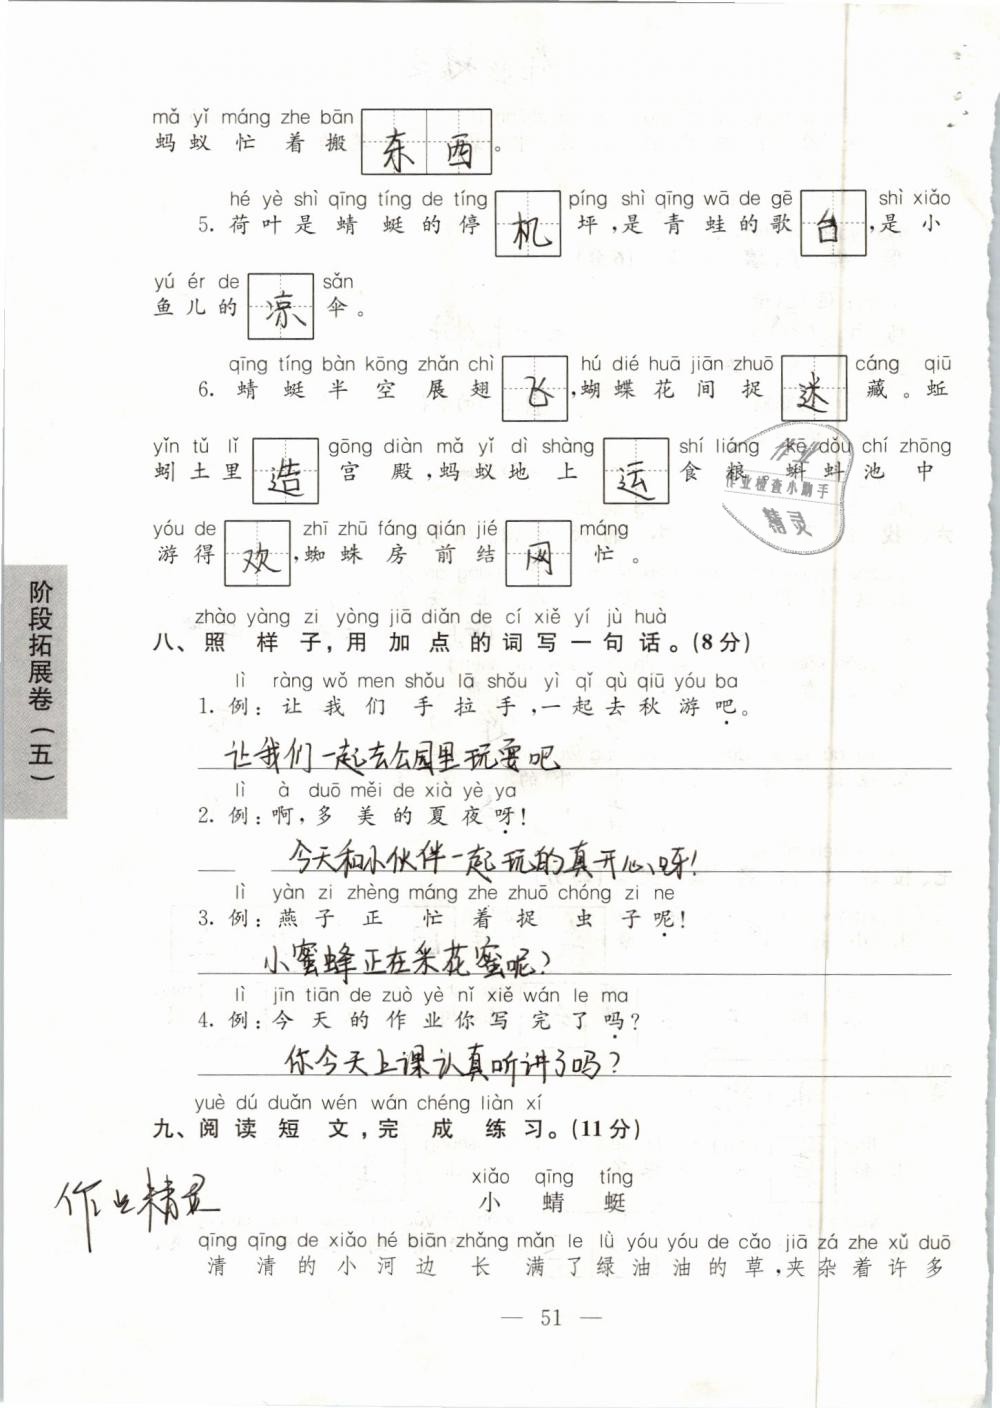 mǎ yǐ máng zhe bān
蚂蚁忙着搬东西。
hé yè shì qīng tíng de tíng píng shì qīng wā de gē shì xiǎo
5. 荷叶是蜻蜓的停机坪,是青蛙的歌台,是小
yú ér de sǎn
鱼儿的凉伞。
qīng tíng bàn kōng zhǎn chì hú dié huā jiān zhuō cáng qiū
6. 蜻蜓半空展翅飞,蝴蝶花间捉迷藏。蚯
yǐn tǔ lǐ gōng diàn mǎ yǐ dì shàng shí liáng kē dǒu chí zhōng
蚓土里造宫殿,蚂蚁地上运食粮。蝌蚪池中
作业
作业检查小助手
精灵
yóu de zhī zhū fáng qián jié máng
游得欢,蜘蛛房前结网忙。
zhào yàng zi yòng jiā diǎn de cí xiě yí jù huà
八、照样子,用加点的词写一句话。(8分)
lì ràng wǒ men shǒu lā shǒu yì qǐ qù qiū yóu ba
1. 例:让我们手拉手,一起去秋游吧。
让我们一起去公园里玩耍吧
lì à duō měi de xià yè ya
2. 例:啊,多美的夏夜呀!
今天和小伙伴一起玩的真开心呀!
lì yàn zi zhèng máng zhe zhuō chóng zi ne
3. 例:燕子正忙着捉虫子呢!
小蜜蜂正在采花蜜呢?
lì jīn tiān de zuò yè nǐ xiě wán le ma
4. 例:今天的作业你写完了吗?
你今天上课认真听讲了吗?
yuè dú duǎn wén wán chéng liàn xí
九、阅读短文,完成练习。(11分)
xiǎo qīng tíng
小蜻蜓
作业精灵
qīng qīng de xiǎo hé biān zhǎng mǎn le lǜ yóu yóu de cǎo jiā zá zhe xǔ duō
清清的小河边长满了绿油油的草,夹杂着许多
阶段拓展卷(五)
— 51 —